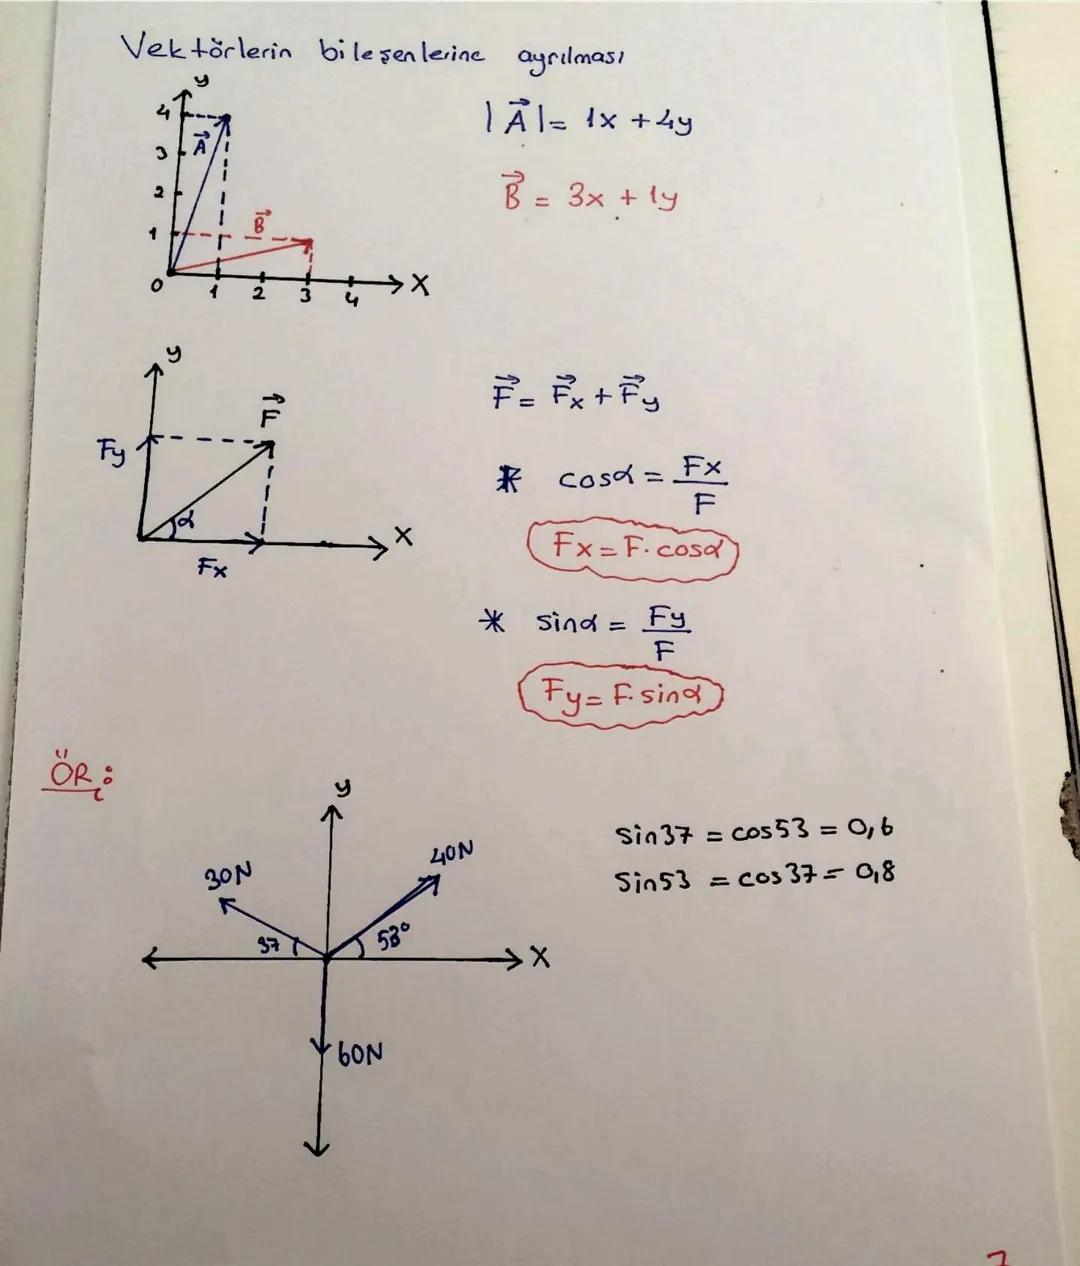 Vektörlerin bileşenlerine ayrılması
y
4
3
2
1
0
1 2 3 4
X
A
B
|A| = 1x + 4y
B = 3x + 1y
y
Fy
F
α
Fx
X
F = Fx + Fy
* cosα = Fx / F
Fx = F. cosα
* sinα = Fy / F
Fy = F. sinα
ÖR:
y
30N
40N
37
53°
X
60N
sin37 = cos53 = 0,6
Sin53 = cos37 = 0,8